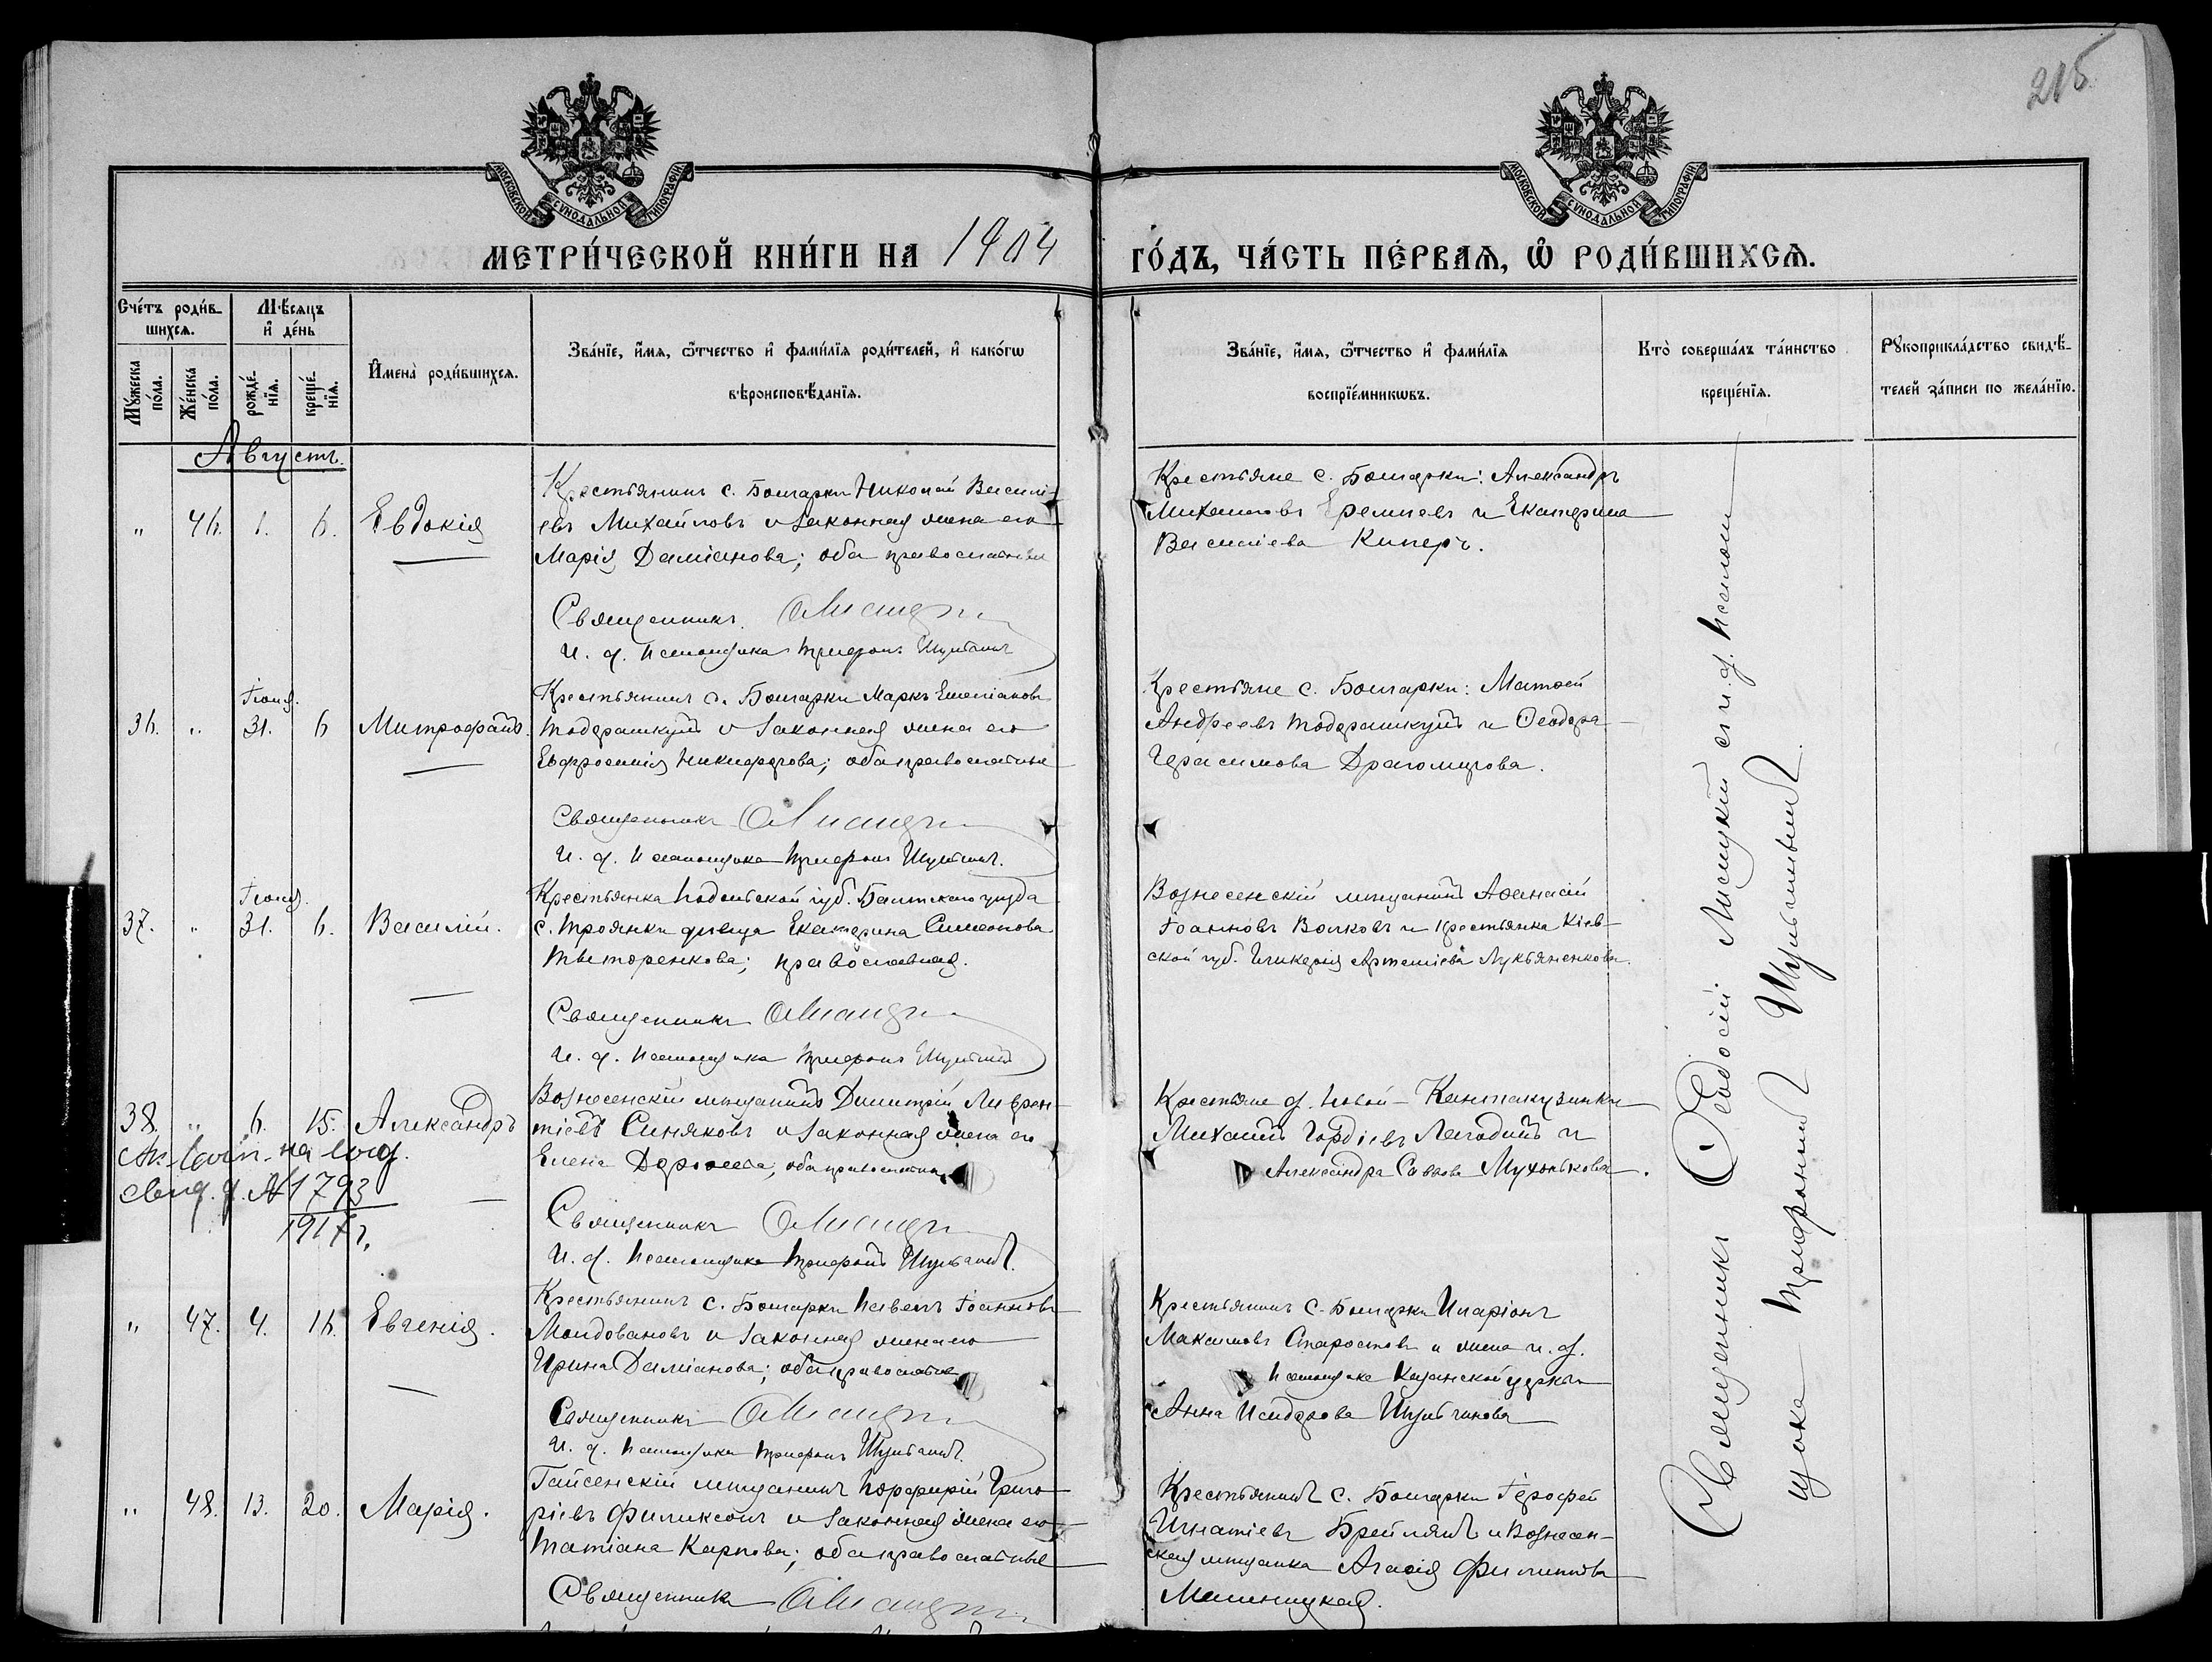 215
МОСКОВСКОЙ СѴНОДАЛЬНОЙ ТИПОГРАФІИ
МОСКОВСКОЙ СѴНОДАЛЬНОЙ ТИПОГРАФІИ
МЕТРИ́ЧЕСКОЙ КНИ́ГИ НА 1904 ГО́ДЪ, ЧА́СТЬ ПЕ́РВАѦ, Ѡ҆ РОДИ́ВШИХСѦ.
Сче́тъ роди́в-
шихсѧ.
Мꙋ́жеска по́ла.
Же́нска по́ла.
Мѣ́сѧцъ
и҆ де́нь
рожде́нїѧ.
креще́нїѧ.
И҆мена̀ роди́вшихсѧ.
Зва́нїе, и҆́мѧ, ѻ҆́тчество и҆ фами́лїѧ роди́телей, и҆ како́гѡ
вѣроисповѣ́данїѧ.
Зва́нїе, и҆́мѧ, ѻ҆́тчество и҆ фами́лїѧ
воспрїе́мникѡвъ.
Кто̀ соверша́лъ та́инство
креще́нїѧ.
Рꙋкоприкла́дство свидѣ́-
телей за́писи по жела́нїю.
Августъ.
" 46. 1. 6. Евдокія
Крестьянинъ с. Болгарки Николай Василі-
евъ Михайловъ и законная жена его
Марія Даміанова; оба православные
Священникъ
И. д. псаломщика Трифонъ Шульгинъ
Крестьяне с. Болгарки: Александръ
Михаиловъ Еремиевъ и Екатерина
Василіева Киперъ.
36. " Іюля 31. 6 Митрофанъ.
Крестьянинъ с. Болгарки Маркъ
Тодерашкунъ и законная жена его
Евфросинія Никифорова; оба православные
Священникъ
И. д. псаломщика Трифонъ Шульгинъ.
Крестьяне с. Болгарки: Матѳей
Андреевъ Тодерашкунъ и Ѳеодора
Герасимова Драгомирова.
37. " Іюля 31. 6. Василій.
Крестьянка Подольской губ. Балтскаго уезда
с. Троянки девица Екатерина Симеонова
Титоренкова; православная.
Священникъ
И. д. псаломщика Трифонъ Шульгинъ
Вознесенскій мещанинъ Аѳанасій
Іоанновъ Волковъ и крестьянка Кіев-
ской губ. Гликерія Артеміева Лукьяненкова.
38. " 6. 15. Александръ
1793
1917 г.
Вознесенскій мещанинъ Димитрій Лаврен-
тіевъ Синяковъ и законная жена его
Елена оба православные
Священникъ
И. д. псаломщика Трифонъ Шульгинъ.
Крестьяне д. Новой-Кантакузинки
Михаилъ Гордіевъ Лагодинъ и
Александра Саввова Мухонькова.
" 47. 4. 16. Евгенія.
Крестьянинъ с. Болгарки Павелъ Іоанновъ
Молдовановъ и законная жена его
Ирина Даміанова; оба православные
Священникъ
И. д. псаломщика Трифонъ Шульгинъ.
Крестьянинъ с. Болгарки Иларіонъ
Максимовъ Старостовъ и жена и. д.
псаломщика Казанской церкви
Анна Исидорова Шульгинова
" 48. 13. 20. Марія.
Гайсенскій мещанинъ Порфирій Григо-
ріевъ Филиксонъ и законная жена его
Татіана Карпова; оба православные
Священникъ
Крестьянинъ с. Болгарки Іерофей
Игнатіевъ и Вознесен-
ская мещанка Агаѳія Филиппова
Малиницкая.
Священникъ Ѳеодосій Лисицкій и и. д. псалом-
щика Трифонъ Шульгинъ.